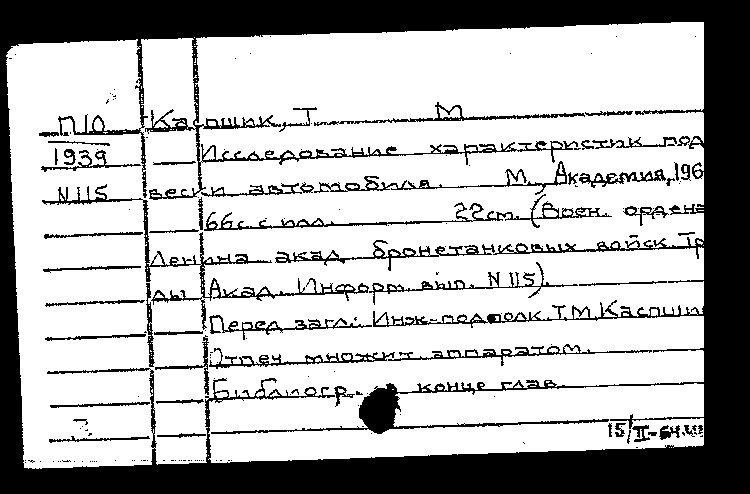 П10 Каспшик, Т М
1939 Исследование характеристик под
N115 вески автомобиля. М., Академия, 196
66с. с илл. 22см. (Воен. ордена
Ленина акад. бронетанковых войск. Тр
ды Акад. Информ. вып. N 115).
Перед загл.: Инж-подполк. Т.М. Каспшик
Отпеч. множит. аппаратом.
Библиогр. в конце глав.
15/II-64